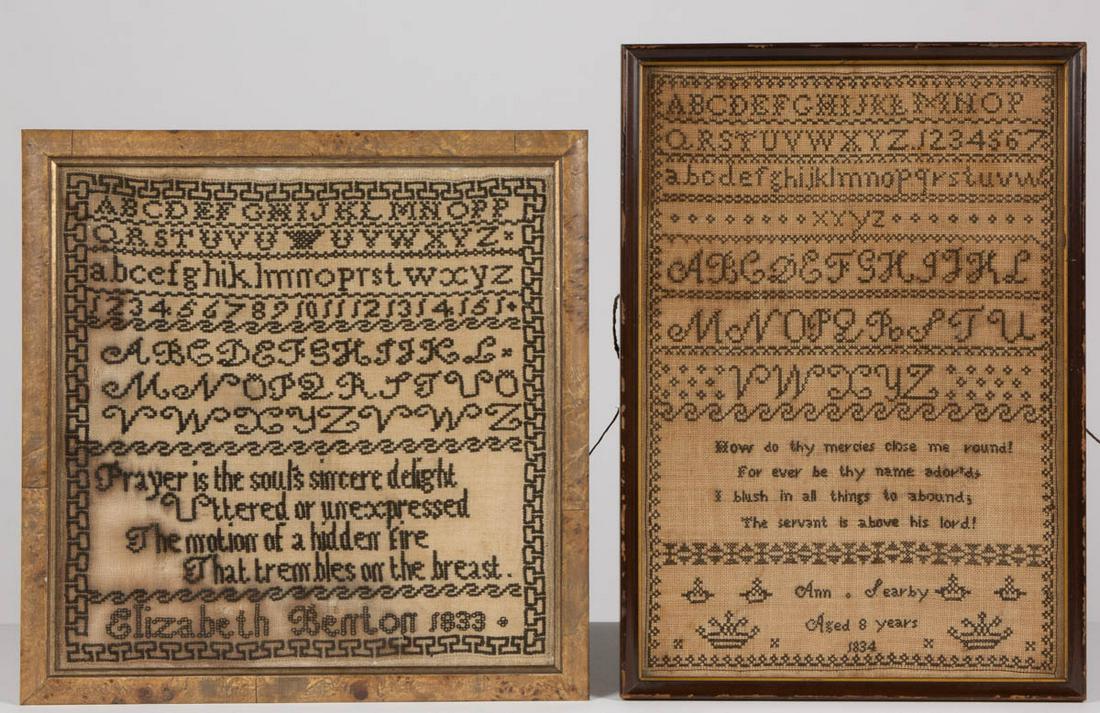 ABCDEFGHIJKLMNOPP
QRSTUVU UVWXYZ
abcefghiklmnoprstwxyz
1234567891011121314151
ABCDEFGHIJKL
MNOPQRSTUO
VWXYZVWZ
Prayer is the soul's sincere delight
Uttered or unexpressed
The motion of a hidden fire
That trembles on the breast.
Elizabeth Benton 1833
ABCDEFGHIJKLMNOP
QRSTUVWXYZ1234567
abcdefghijklmnopqrstuvw
xxyz
ABCDEFGHIJKL
MNOPQRSTU
VWXYZ
How do thy mercies close me round!
For ever be thy name ador'd;
I blush in all things to abound;
The servant is above his lord!
Ann . Searby
Aged 8 years
1834